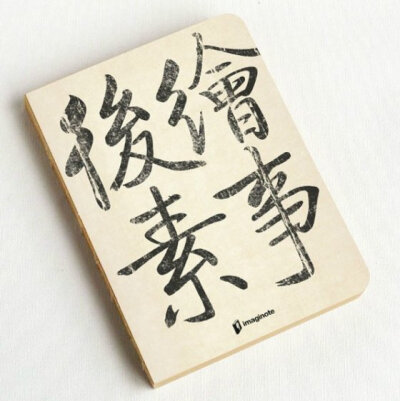 繪事
後素
imaginote